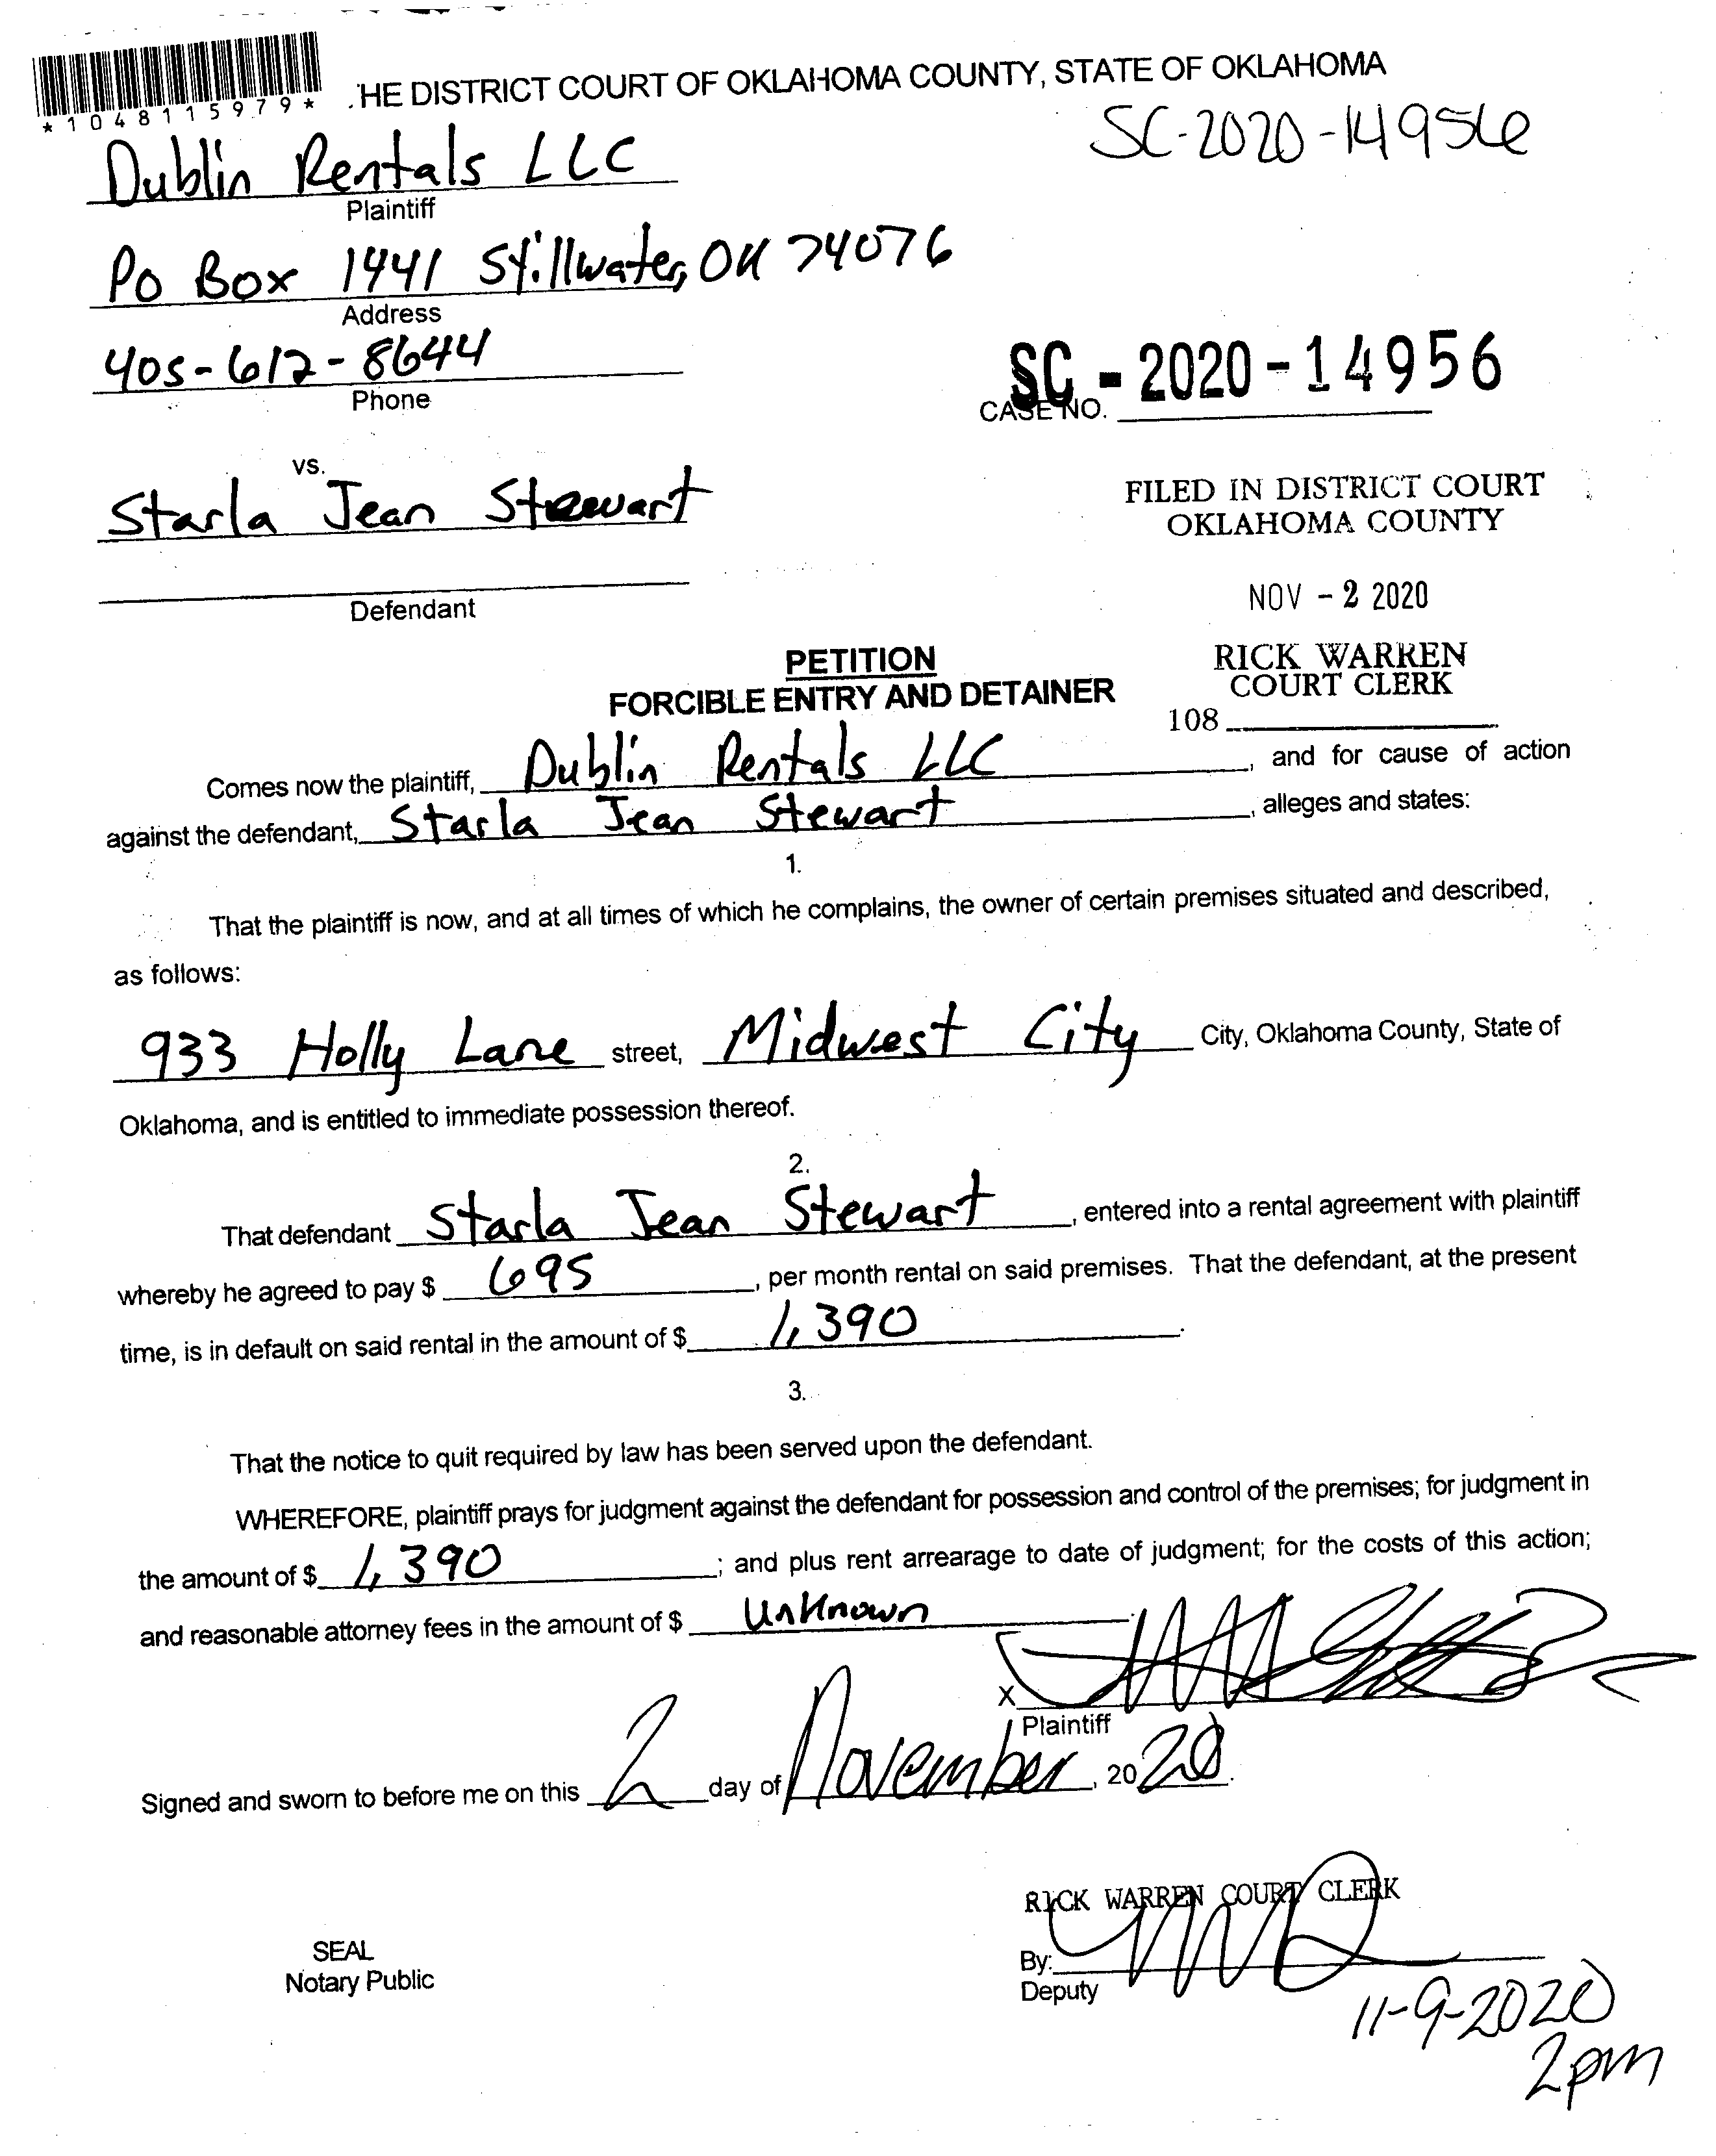 *1048115979*
HE DISTRICT COURT OF OKLAHOMA COUNTY, STATE OF OKLAHOMA
SC-2020-14956
Dublin Rentals LLC
Plaintiff
PO Box 1441 Stillwater, OK 74076
Address
405-612-8644
Phone
SC-2020-14956
CASE NO.
vs.
Starla Jean Stewart
Defendant
FILED IN DISTRICT COURT
OKLAHOMA COUNTY
NOV -2 2020
RICK WARREN
COURT CLERK
108
PETITION
FORCIBLE ENTRY AND DETAINER
Comes now the plaintiff, Dublin Rentals LLC, and for cause of action
against the defendant, Starla Jean Stewart, alleges and states:
1.
That the plaintiff is now, and at all times of which he complains, the owner of certain premises situated and described,
as follows:
933 Holly Lane street, Midwest City City, Oklahoma County, State of
Oklahoma, and is entitled to immediate possession thereof.
2.
That defendant Starla Jean Stewart, entered into a rental agreement with plaintiff
whereby he agreed to pay $ 695, per month rental on said premises. That the defendant, at the present
time, is in default on said rental in the amount of $ 1,390.
3.
That the notice to quit required by law has been served upon the defendant.
WHEREFORE, plaintiff prays for judgment against the defendant for possession and control of the premises; for judgment in
the amount of $ 1,390; and plus rent arrearage to date of judgment; for the costs of this action;
and reasonable attorney fees in the amount of $ Unknown
X
Plaintiff
Signed and sworn to before me on this 2 day of November, 2020.
RICK WARREN COURT CLERK
By:
Deputy
SEAL
Notary Public
11-9-2020
2pm